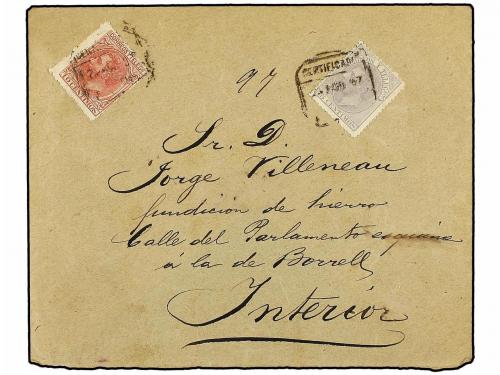 97
CERTIFICADO
Sr. D.
Jorge Villeneau
fundición de hierro
Calle del Parlamento esquina
á la de Borrell
Interior